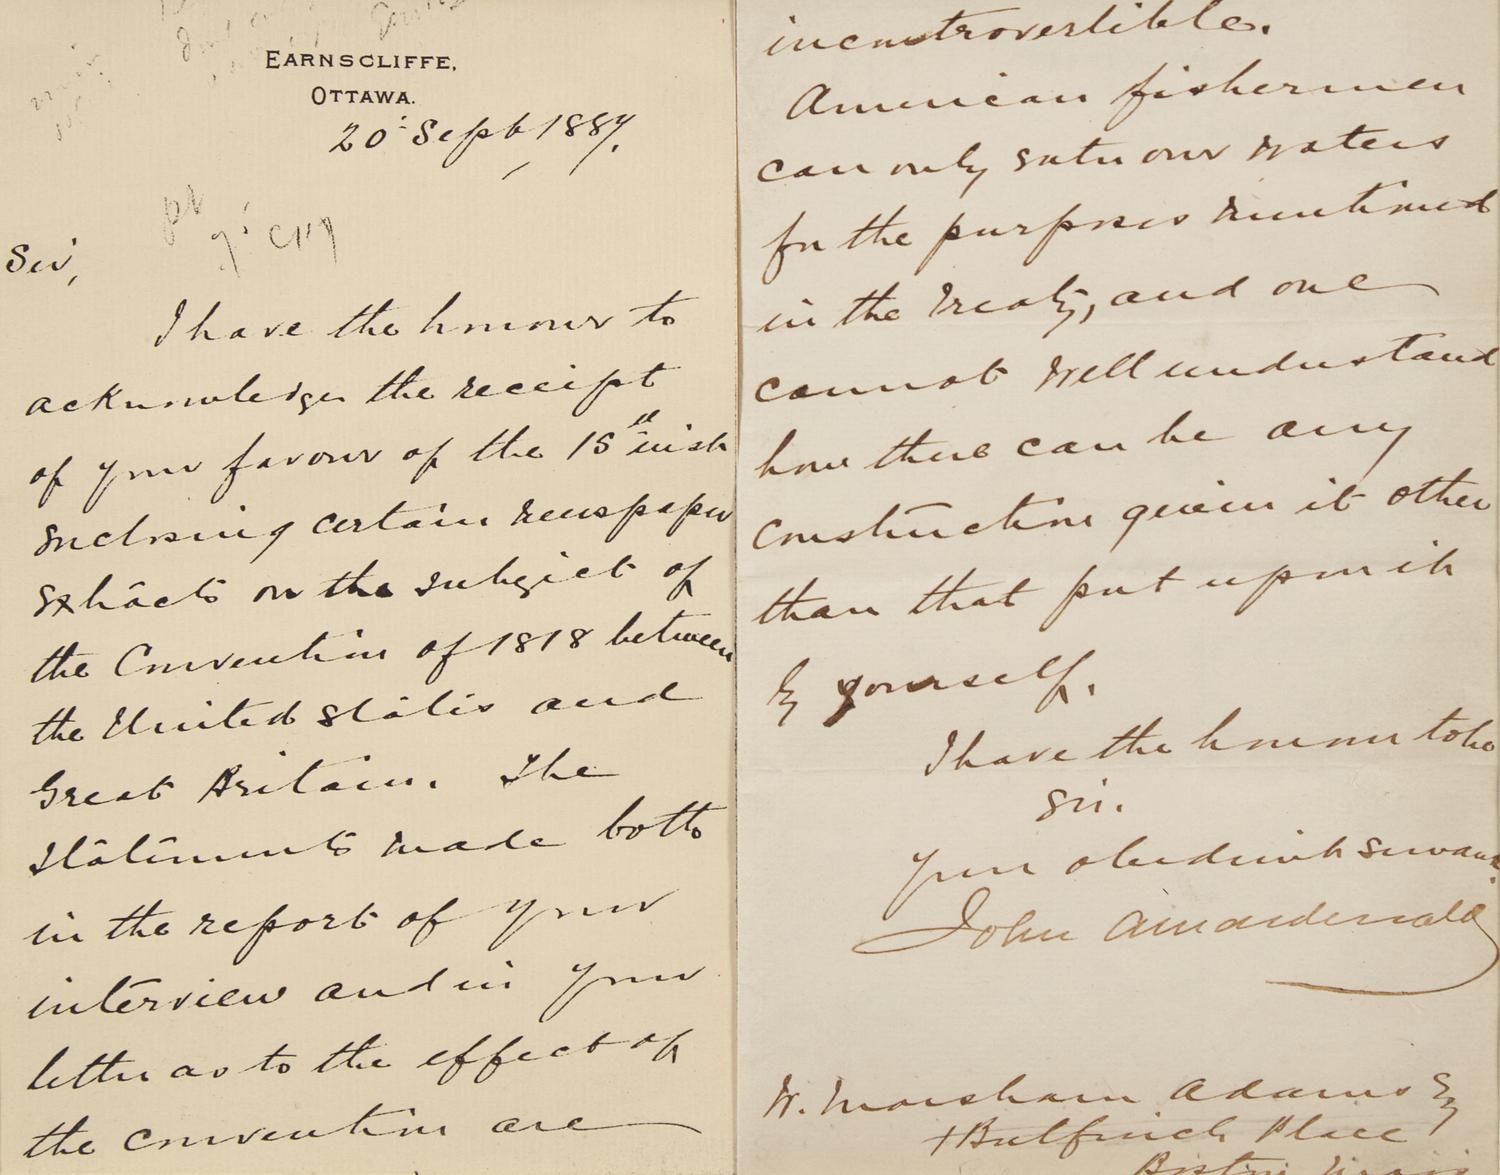 EARNSCLIFFE,
OTTAWA.
20 Sept 1887.
Sir,
I have the honour to
acknowledge the receipt
of your favour of the 15th inst
enclosing certain newspaper
extracts on the subject of
the Convention of 1818 between
the United States and
Great Britain. The
statements made both
in the report of your
interview and in your
letter as to the effect of
the convention are
incontrovertible.
American fishermen
can only enter our waters
for the purposes mentioned
in the treaty, and one
cannot well understand
how there can be any
construction given it other
than that put upon it
by yourself.
I have the honour to be
Sir.
Your obedient servant.
John A Macdonald
W. Marsham Adams Esq
1 Bulfinch Place
Boston